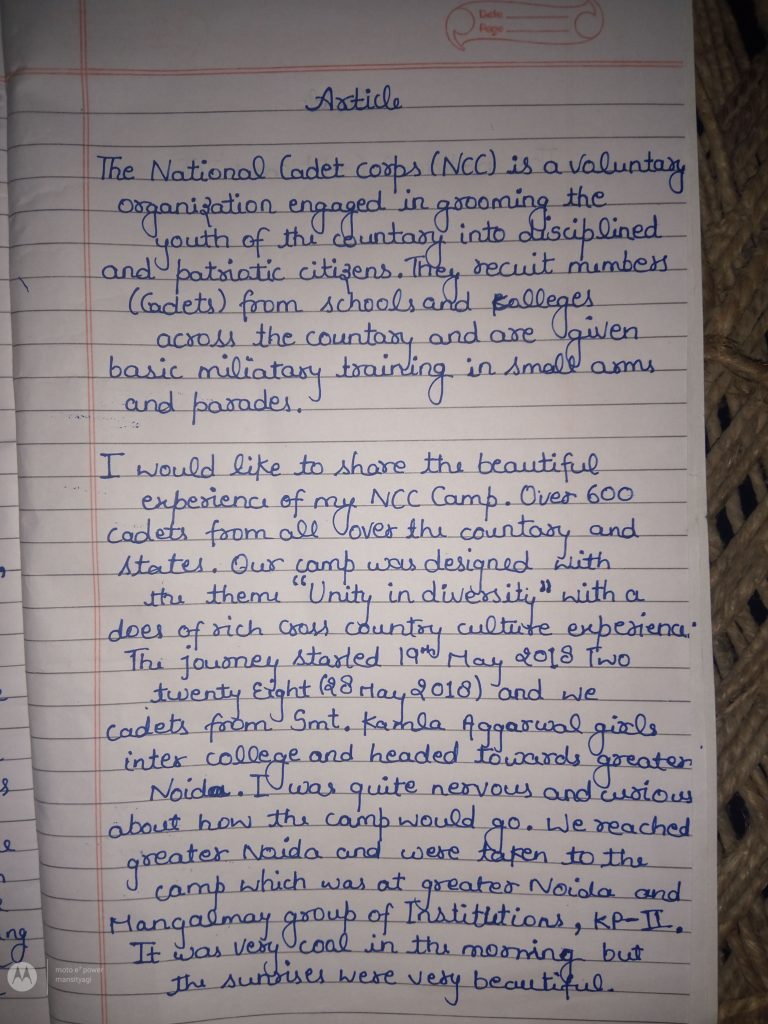 Date
Page
Article
The National Cadet corps (NCC) is a valuntary
organization engaged in grooming the
youth of the countary into disciplined
and patriatic citizens. They recuit mumbers
(Cadets) from schools and colleges
across the countary and are given
basic miliatary training in small arms
and parades.
I would like to share the beautiful
experience of my NCC Camp. Over 600
cadets from all over the countary and
states. Our camp was designed with
the theme "Unity in diversity" with a
does of rich cross country culture experience.
The journey started 19th May 2018 Two
twenty Eight (28 May 2018) and we
cadets from Smt. Kamla Aggarwal girls
inter college and headed towards greater
Noida. I was quite nervous and curious
about how the camp would go. We reached
greater Noida and were taken to the
camp which was at greater Noida and
Mangalmay group of Institutions, KP-II.
It was very coal in the morning but
the sunrises were very beautiful.
moto e⁵ power
mansityagi